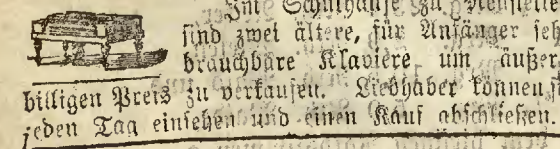 Im Schulhause zu
sind zwei ältere, für Anfänger seh
brauchbare Klaviere um äußer
billigen Preis zu verkaufen. Liebhaber können s
jeden Tag einsehen und einen Kauf abschließen.